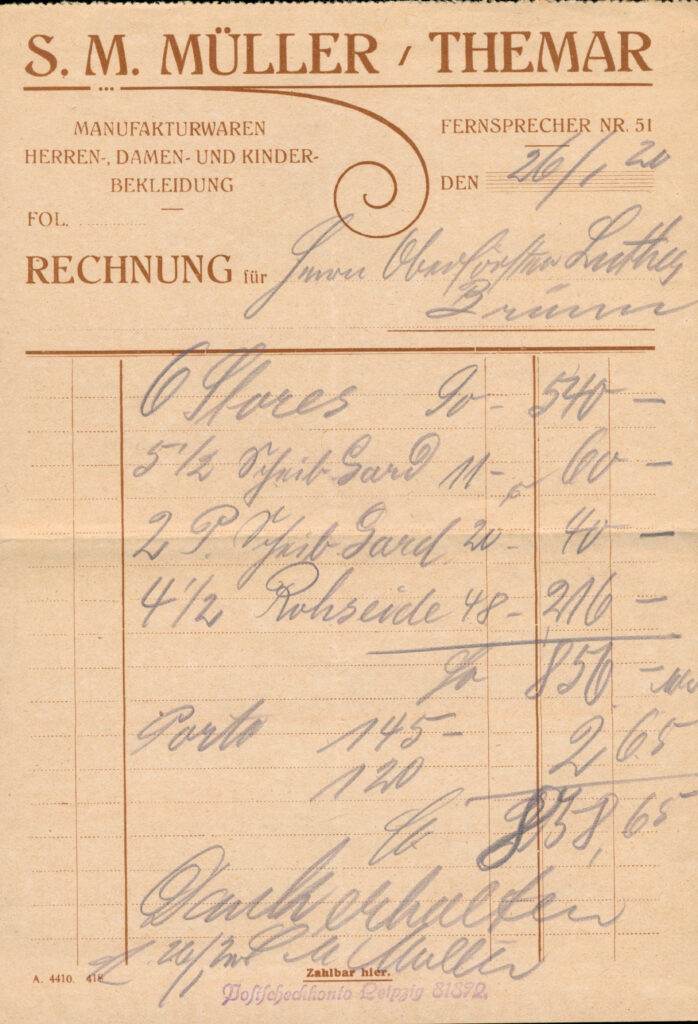 S. M. MÜLLER / THEMAR
MANUFAKTURWAREN
HERREN-, DAMEN- UND KINDER-
BEKLEIDUNG
FERNSPRECHER NR. 51
DEN 26/1, 20
FOL.
RECHNUNG für Herrn Oberförster Luther
Brünn
6 Stores 90- 540 —
5 1/2 Scheib Gard 11- 60 —
2 P. Scheib Gard. 20- 40 —
4 1/2 Rohseide 48- 216 —
856 -
Porto 145- 2,65
120
858,65
Dank erhalten
26/1, 20 S M Müller
A. 4410. 418
Zahlbar hier.
Postscheckkonto Leipzig 81372.